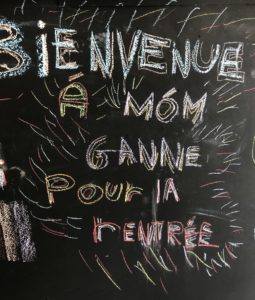 BIENVENUE
Á MÓM
GANNE
POUR lA
rENTRÉE